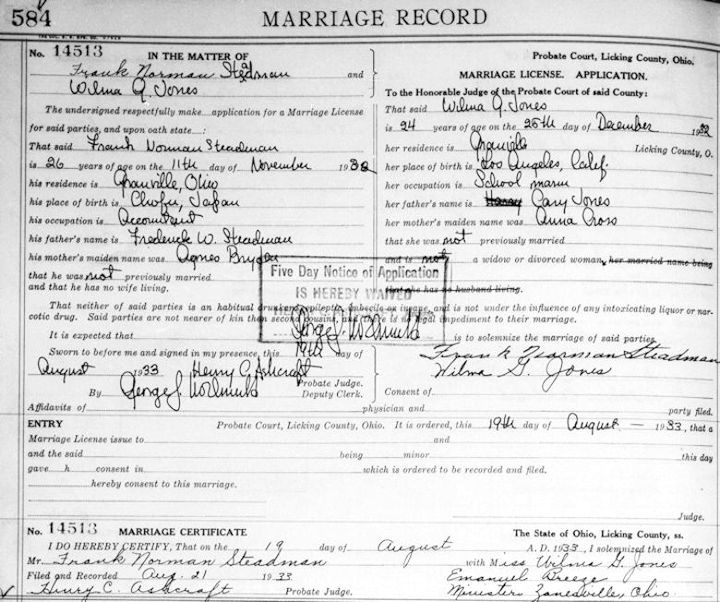 584
MARRIAGE RECORD
No. 14513 IN THE MATTER OF
Frank Norman Steadman and
Wilma G. Jones
The undersigned respectfully make application for a Marriage License
for said parties, and upon oath state:
That said Frank Norman Steadman
is 26 years of age on the 11th day of November 1932
his residence is Granville, Ohio
his place of birth is Chofu, Japan
his occupation is Accountant
his father's name is Frederick W. Steadman
his mother's maiden name was Agnes Bryden
that he was not previously married
and that he has no wife living.
Probate Court, Licking County, Ohio.
MARRIAGE LICENSE. APPLICATION.
To the Honorable Judge of the Probate Court of said County:
That said Wilma G. Jones
is 24 years of age on the 25th day of December 1932
her residence is Granville Licking County, O.
her place of birth is Los Angeles, Calif
her occupation is School marm
her father's name is Harry Cary Jones
her mother's maiden name was Anna Cross
that she was not previously married
and is not a widow or divorced woman, her married name being
that she has no husband living.
Five Day Notice of Application
IS HEREBY WAIVED
That neither of said parties is an habitual drunkard, epileptic, imbecile or insane, and is not under the influence of any intoxicating liquor or nar-
cotic drug. Said parties are not nearer of kin than second cousins, and there is no legal impediment to their marriage.
It is expected that is to solemnize the marriage of said parties.
Sworn to before me and signed in my presence, this 19th day of
August 1933 Henry C. Ashcraft
Probate Judge.
By Deputy Clerk.
Frank Norman Steadman
Wilma G. Jones
Consent of
Affidavits of physician and party filed.
ENTRY Probate Court, Licking County, Ohio. It is ordered, this 19th day of August 1933, that a
Marriage License issue to and
and the said being minor this day
gave h consent in which is ordered to be recorded and filed.
hereby consent to this marriage.
Judge.
No. 14513 MARRIAGE CERTIFICATE The State of Ohio, Licking County, ss.
I DO HEREBY CERTIFY, That on the 19 day of August A. D. 1933, I solemnized the Marriage of
Mr. Frank Norman Steadman with Miss Wilma G. Jones
Filed and Recorded Aug. 21 1933 Emanuel Breeze
Henry C. Ashcraft Probate Judge. Minister Zanesville, Ohio.